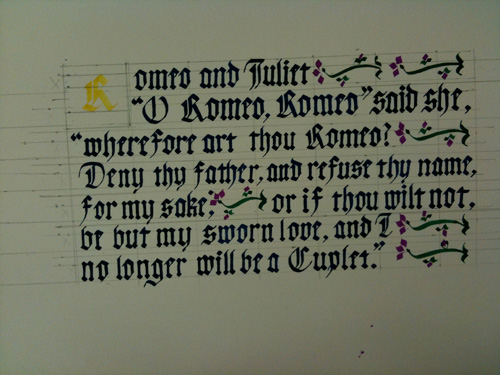 Romeo and Juliet
"O Romeo, Romeo" said she,
"wherefore art thou Romeo?
Deny thy father, and refuse thy name,
for my sake, or if thou wilt not,
be but my sworn love, and I
no longer will be a Cuplet."